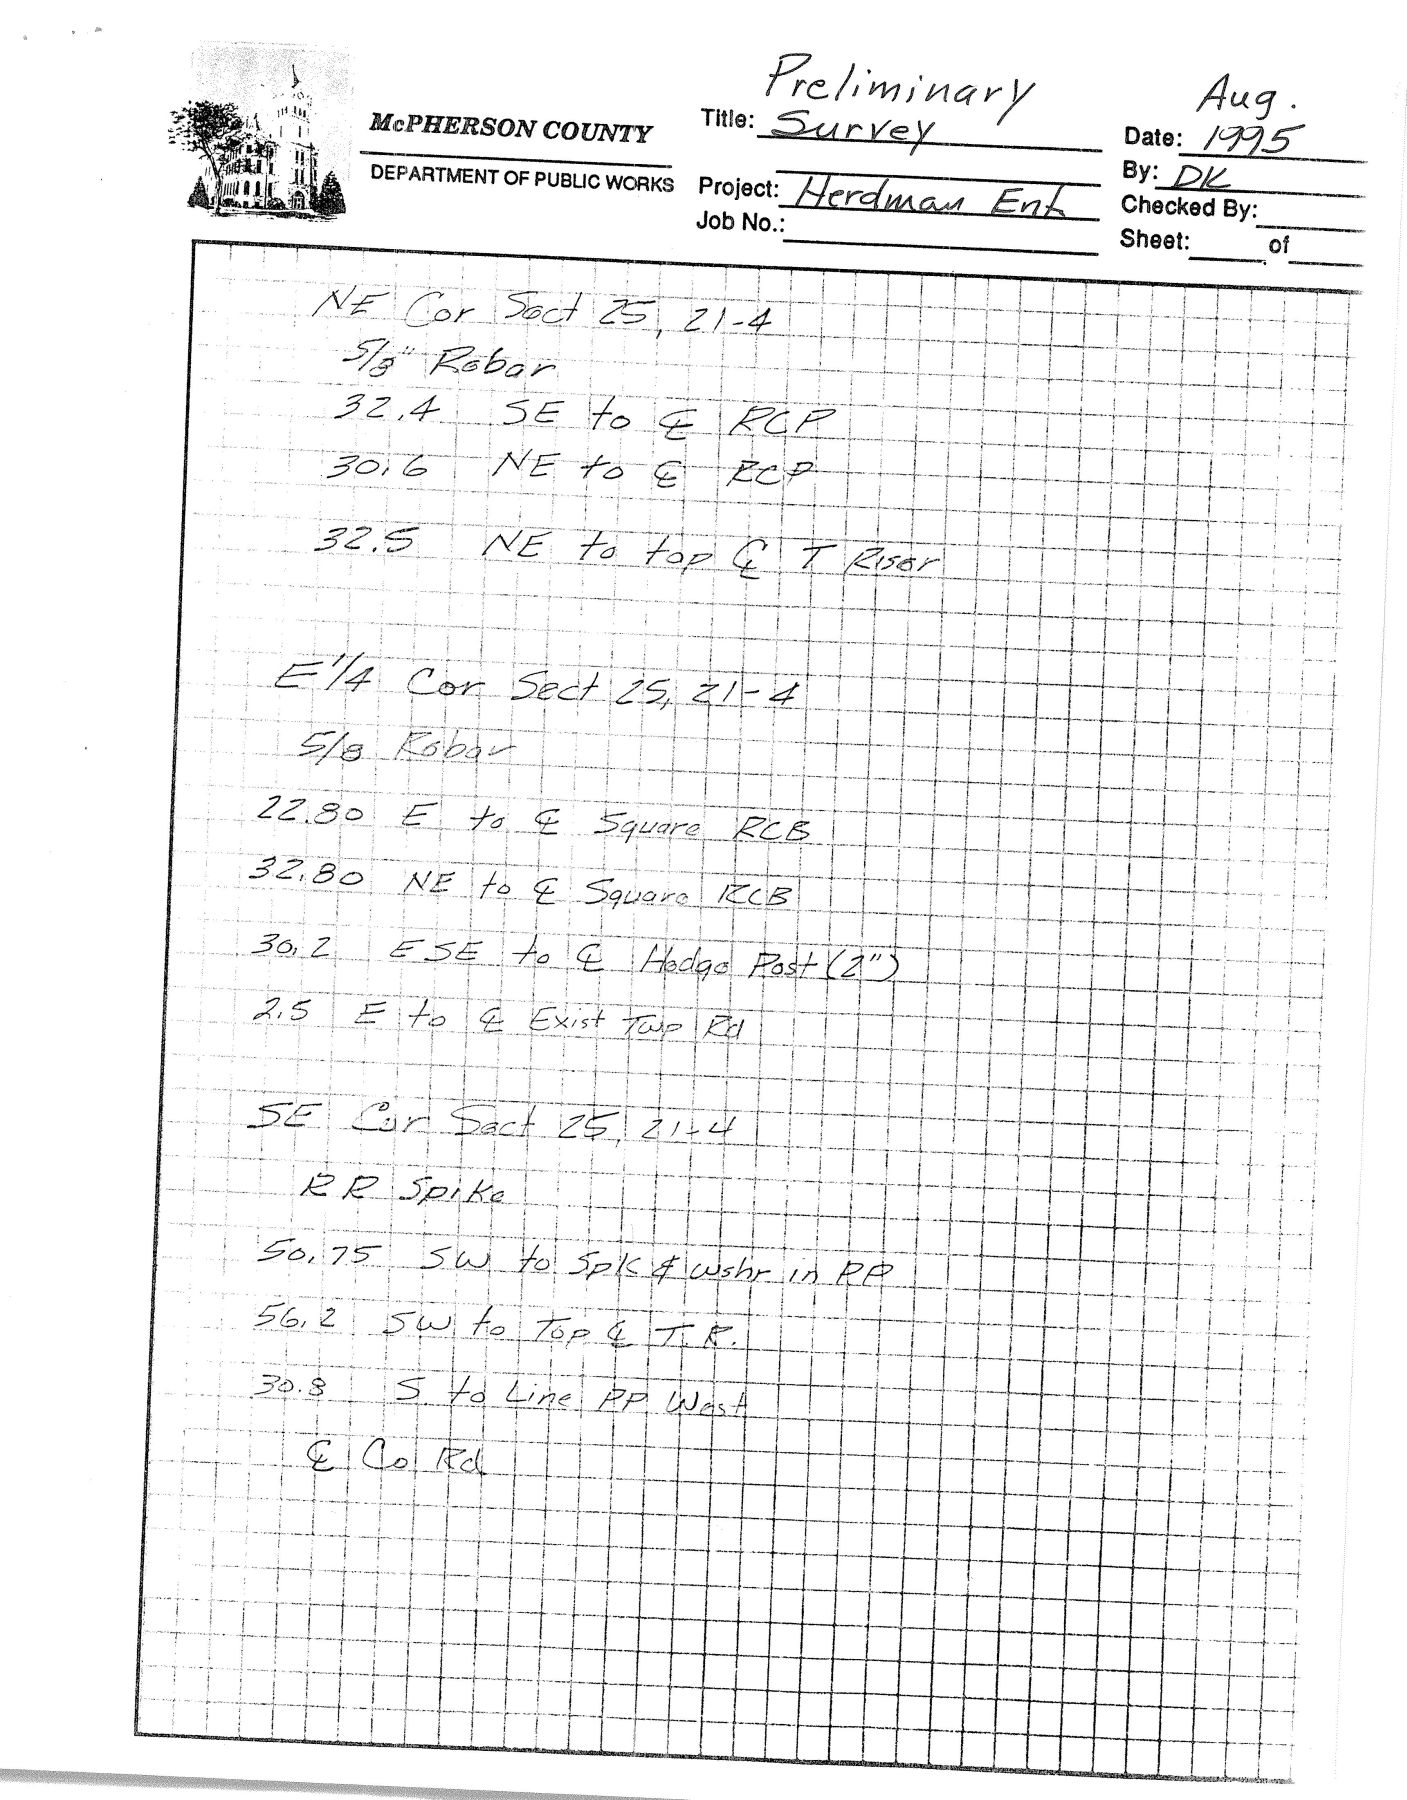 McPHERSON COUNTY
DEPARTMENT OF PUBLIC WORKS
Title: Preliminary Survey
Project: Herdman Ent
Job No.:
Date: Aug. 1995
By: DK
Checked By:
Sheet: of
NE Cor Sect 25, 21-4
5/8" Rebar
32.4 SE to ℄ RCP
30.6 NE to ℄ RCP
32.5 NE to top ℄ T Riser
E 1/4 Cor Sect 25, 21-4
5/8 Rebar
22.80 E to ℄ Square RCB
32.80 NE to ℄ Square RCB
30.2 ESE to ℄ Hedge Post (2")
2.5 E to ℄ Exist Twp Rd
SE Cor Sect 25, 21-4
RR Spike
50.75 SW to Spk & wshr in PP
56.2 SW to Top ℄ T.R.
30.8 S to Line PP West
℄ Co Rd